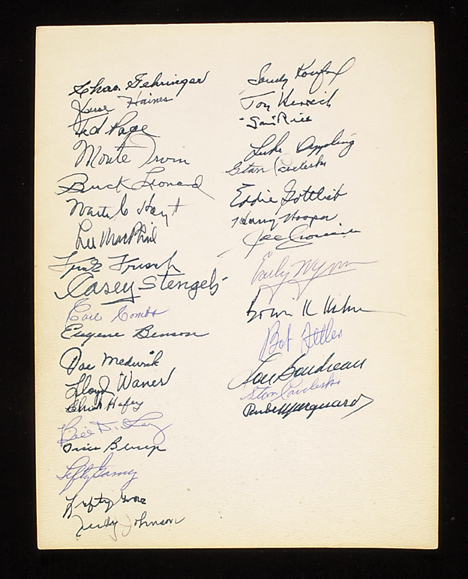 Chas. Gehringer
Jesse Haines
Ted Page
Monte Irvin
Buck Leonard
Waite C Hoyt
Lee MacPhail
Frank Frisch
Casey Stengel
Earle Combs
Eugene Benson
Joe Medwick
Lloyd Waner
Chick Hafey
Bill Dickey
Lefty Gomez
Lefty Grove
Judy Johnson
Sandy Koufax
Sam Rice
Luke Appling
Stan Coveleski
Eddie Gottlieb
Harry Hooper
Joe Cronin
Early Wynn
Bowie K Kuhn
Bob Feller
Lou Boudreau
Stan Coveleski
Rube Marquard